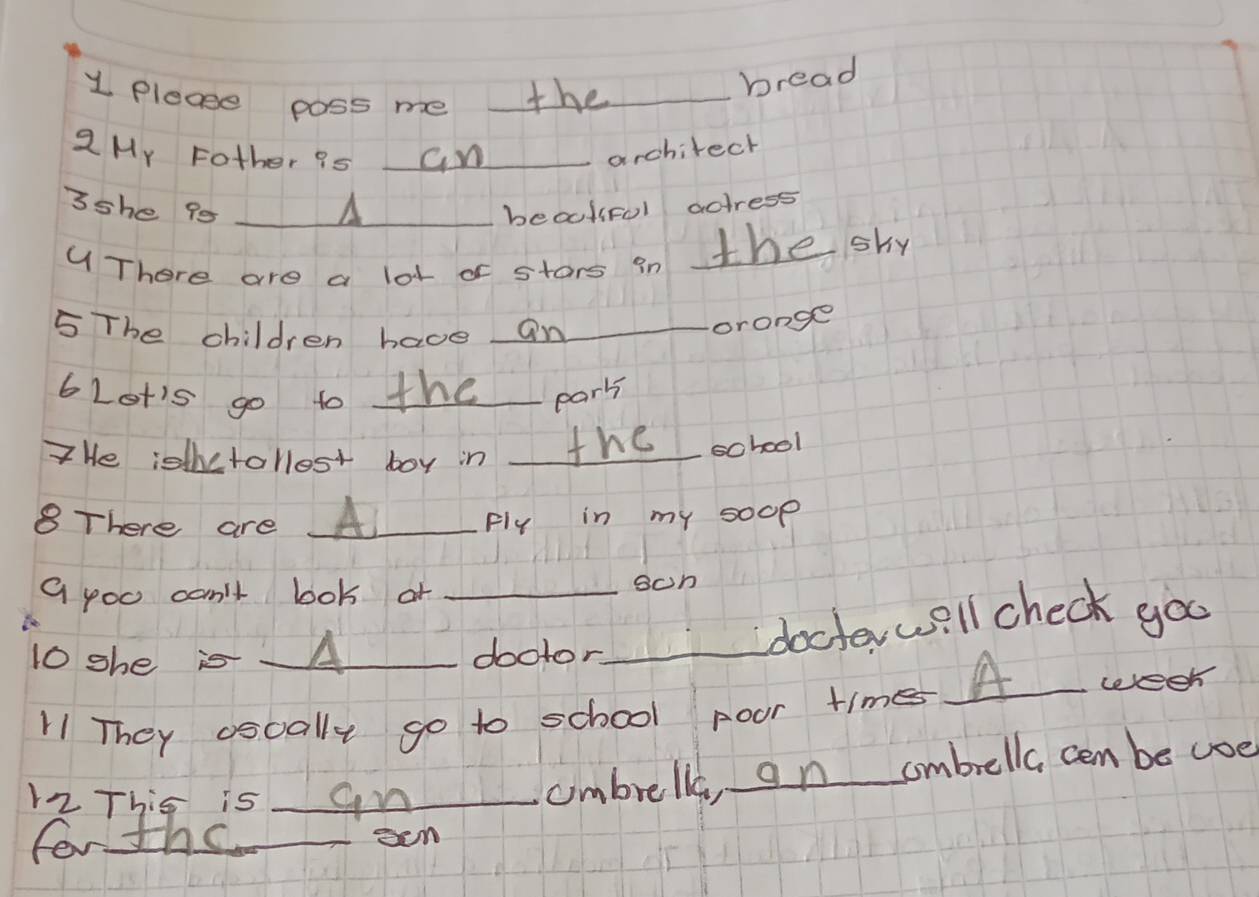 1 Please pass me the bread
2 My Father is an architect
3 she is A beautiful actress
4 There are a lot of stars in the sky
5 The children have an orange
6 Let's go to the park
7 He is the tallest boy in the school
8 There are A fly in my soup
9 you can't look at ______ sun
10 she is A doctor ______ doctor will check you
11 They usually go to school four times A week
12 This is an umbrella, an umbrella can be use
for the sun